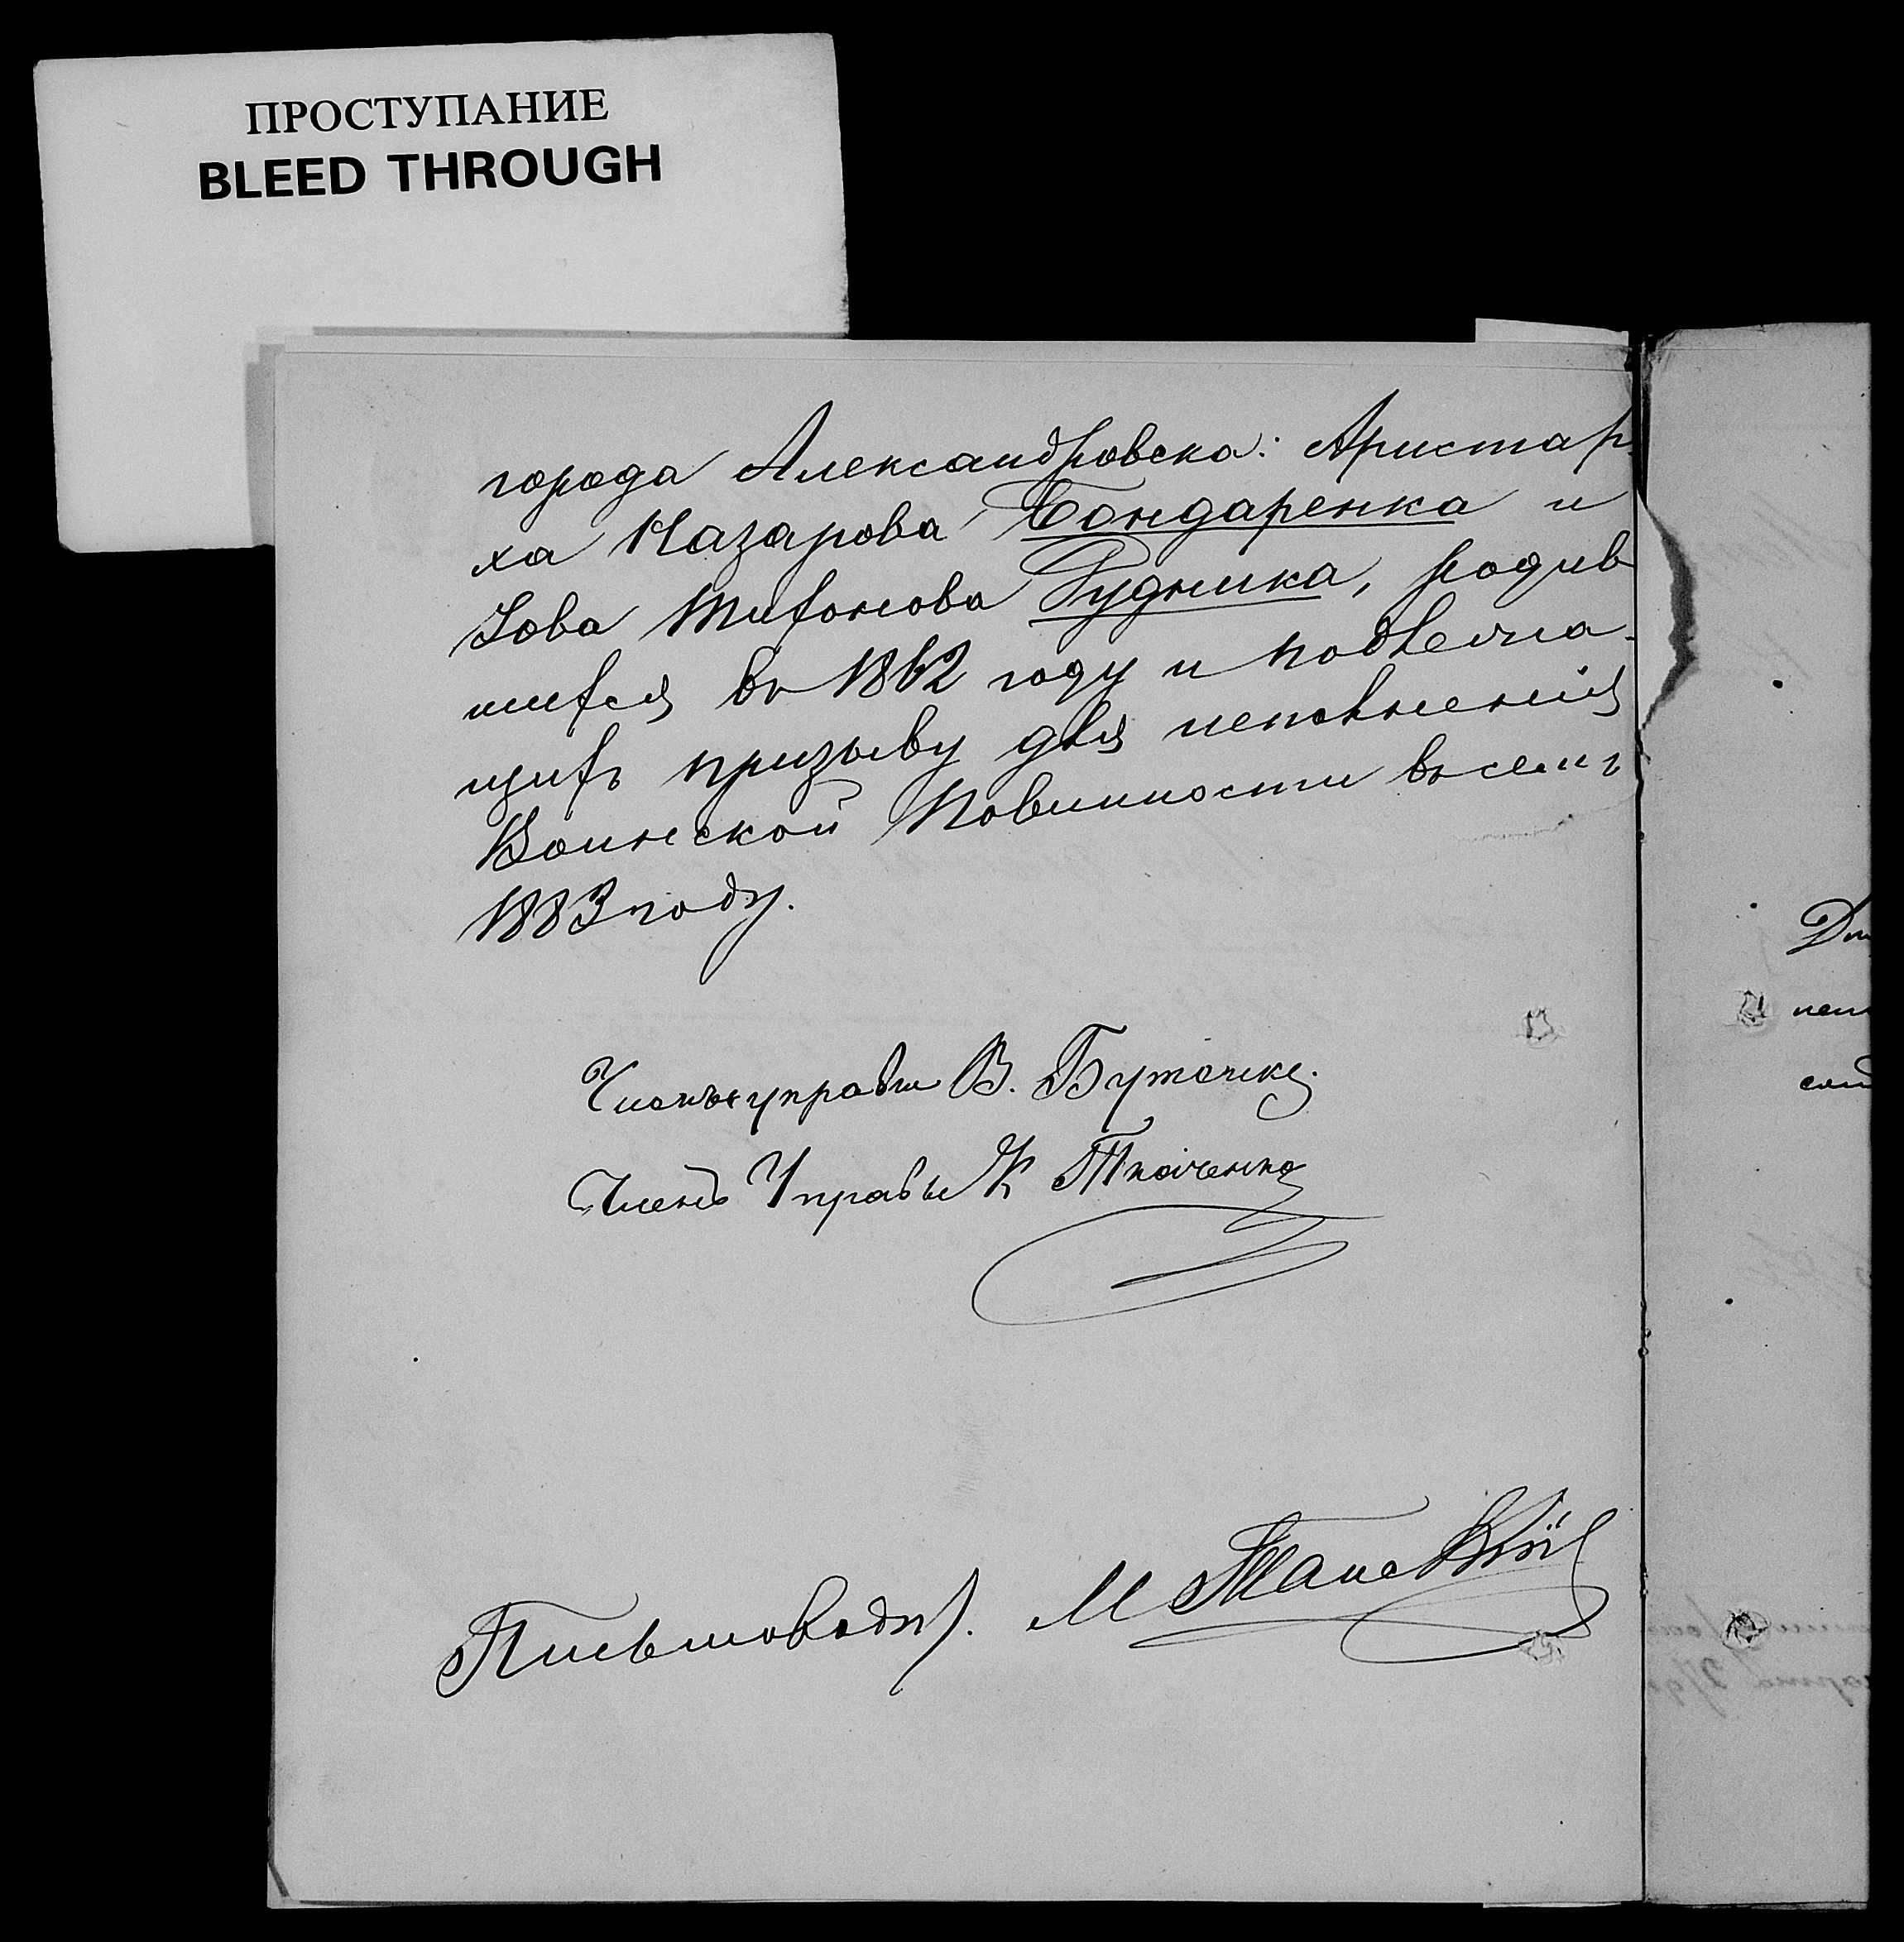 ПРОСТУПАНИЕ
BLEED THROUGH
города Александровска: Аристар-
ха Назарова Бондаренка и
Іова Тихонова Рудника, родив
шихся въ 1862 году и подлежа-
щихъ призыву для исполненія
Воинской Повинности въ семъ
1883 году.
Членъ управы В. Буточка
Членъ Управы К Ткаченко
Письмоводит. М